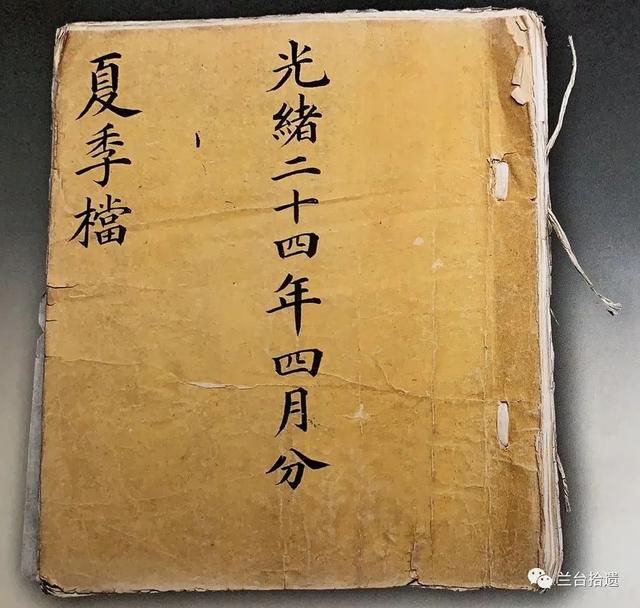 光緒二十四年四月分
夏季檔
兰台拾遗